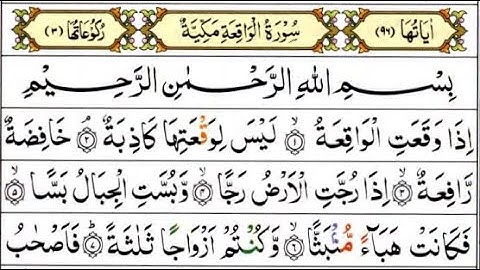 اٰیَاتُهَا (٩٦) سُوْرَةُ الْوَاقِعَةِ مَكِّيَّةٌ رُكُوْعَاتُهَا (٣)
بِسْمِ اللهِ الرَّحْمٰنِ الرَّحِيْمِ
اِذَا وَقَعَتِ الْوَاقِعَةُ ۝١ لَيْسَ لِوَقْعَتِهَا كَاذِبَةٌ ۝٢ خَافِضَةٌ
رَّافِعَةٌ ۝٣ اِذَا رُجَّتِ الْاَرْضُ رَجًّا ۝٤ وَّبُسَّتِ الْجِبَالُ بَسًّا ۝٥
فَكَانَتْ هَبَآءً مُّنْۢبَثًّا ۝٦ وَّكُنْتُمْ اَزْوَاجًا ثَلٰثَةً ۝٧ فَاَصْحٰبُ